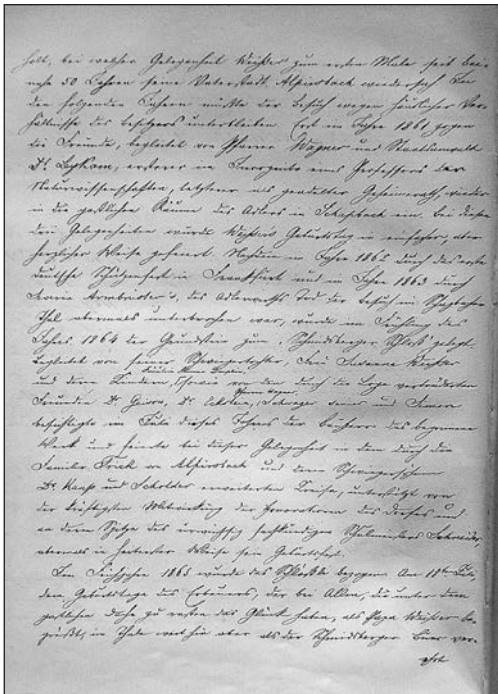 holt, bei welcher Gelegenheit zum ersten Male seit bei-
nahe 50 Jahren seine Vaterstadt Alpirsbach wiedersah. In
den folgenden Jahren mußte der Besuch wegen häuslicher Ver-
hältnisse des Besitzers unterbleiben. Erst im Jahre 1861 zogen
die Freunde, begleitet von Pfarrer Wagner und Staatsanwalt
Dr. ersterer im eines Professors der
Naturwissenschaften, letzterer als Geheimrath wieder
in die gastlichen Räume des Adlers in Schapbach ein. Bei diesen
drei Gelegenheiten wurde Geburtstag in einfacher, aber
herzlicher Weise gefeiert. Nachdem im Jahre 1862 durch das erste
deutsche Schützenfest in Frankfurt und im Jahre 1863 durch
Armbruster's, des Adlerwirths Tod der Besuch im Schapbacher
Thal abermals unterbrochen war, wurde im Frühling des
Jahres 1864 der Grundstein zum "Schmidsberger Schloß" gelegt.
Begleitet von seiner Schwiegertochter, Frau Susanna
und deren Kindern, sowie von den durch die Loge verbrüderten
Freunden Dr. Dr. Eckstein, Schwager und
besichtigte im Juli dieses Jahres der Bauherr das begonnene
Werk und feierte bei dieser Gelegenheit in dem durch die
Familie Trick in Alpirsbach und deren Schwiegersöhne
Dr. und erweiterten Kreise, unterstützt von
der kräftigsten Mitwirkung der Honoratioren des Dorfes und
an deren Spitze des sachkundigen Schulmeisters
abermals in heiterster Weise sein Geburtsfest.
Im Frühjahr 1865 wurde das Schlößle bezogen. Am 11ten Juli,
dem Geburtstage des Erbauers, der bei Allen, die unter dem
gastlichen Dache zu rasten das Glück hatten, als Papa be-
grüßt, im Thale weithin aber als der Schmidsberger Bauer ver-
ehrt